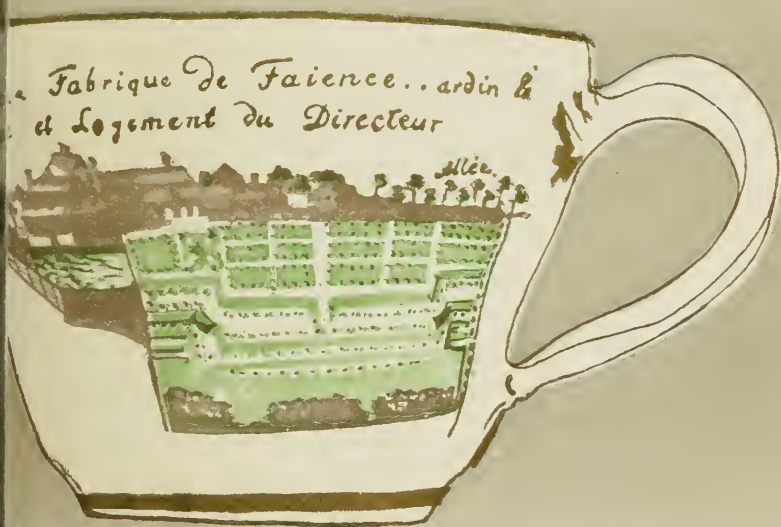 Fabrique de Faience.. ardin &
et Logement du Directeur
Allée.